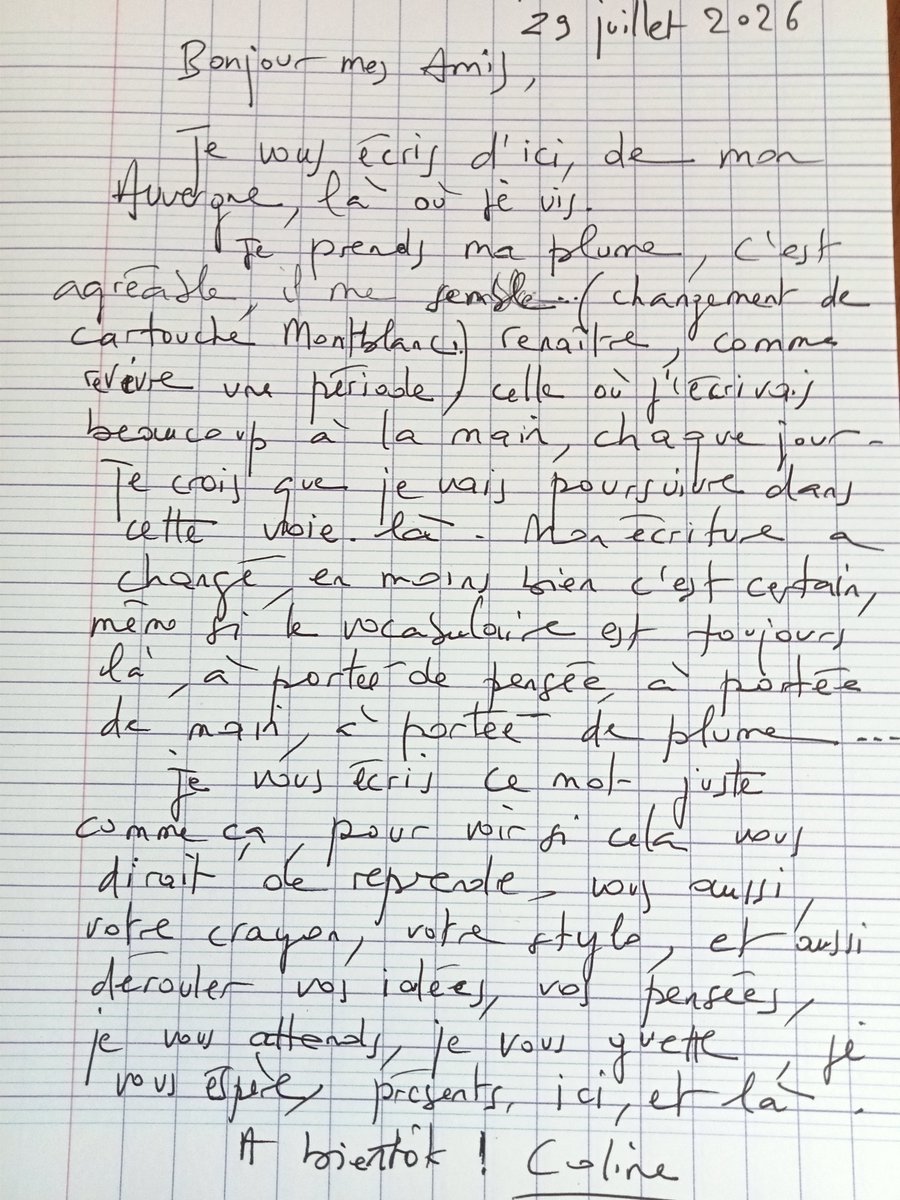 29 juillet 2026
Bonjour mes Amis,
Je vous écris d'ici, de mon
Auvergne, là où je vis.
Je prends ma plume, c'est
agréable, il me semble...(changement de
cartouche Montblanc!) renaître, comme
revivre une période, celle où j'écrivais
beaucoup à la main, chaque jour-
Je crois que je vais poursuivre dans
cette voie-là. Mon écriture a
changé, en moins bien c'est certain,
même si le vocabulaire est toujours
là, à portée de pensée, à portée
de main, à portée de plume ...
Je vous écris ce mot juste
comme ça, pour voir si cela vous
dirait de reprende, vous aussi,
votre crayon, votre stylo, et aussi
dérouler vos idées, vos pensées,
je vous attends, je vous guette, je
vous espère, présents, ici, et là.
A bientôt ! Coline